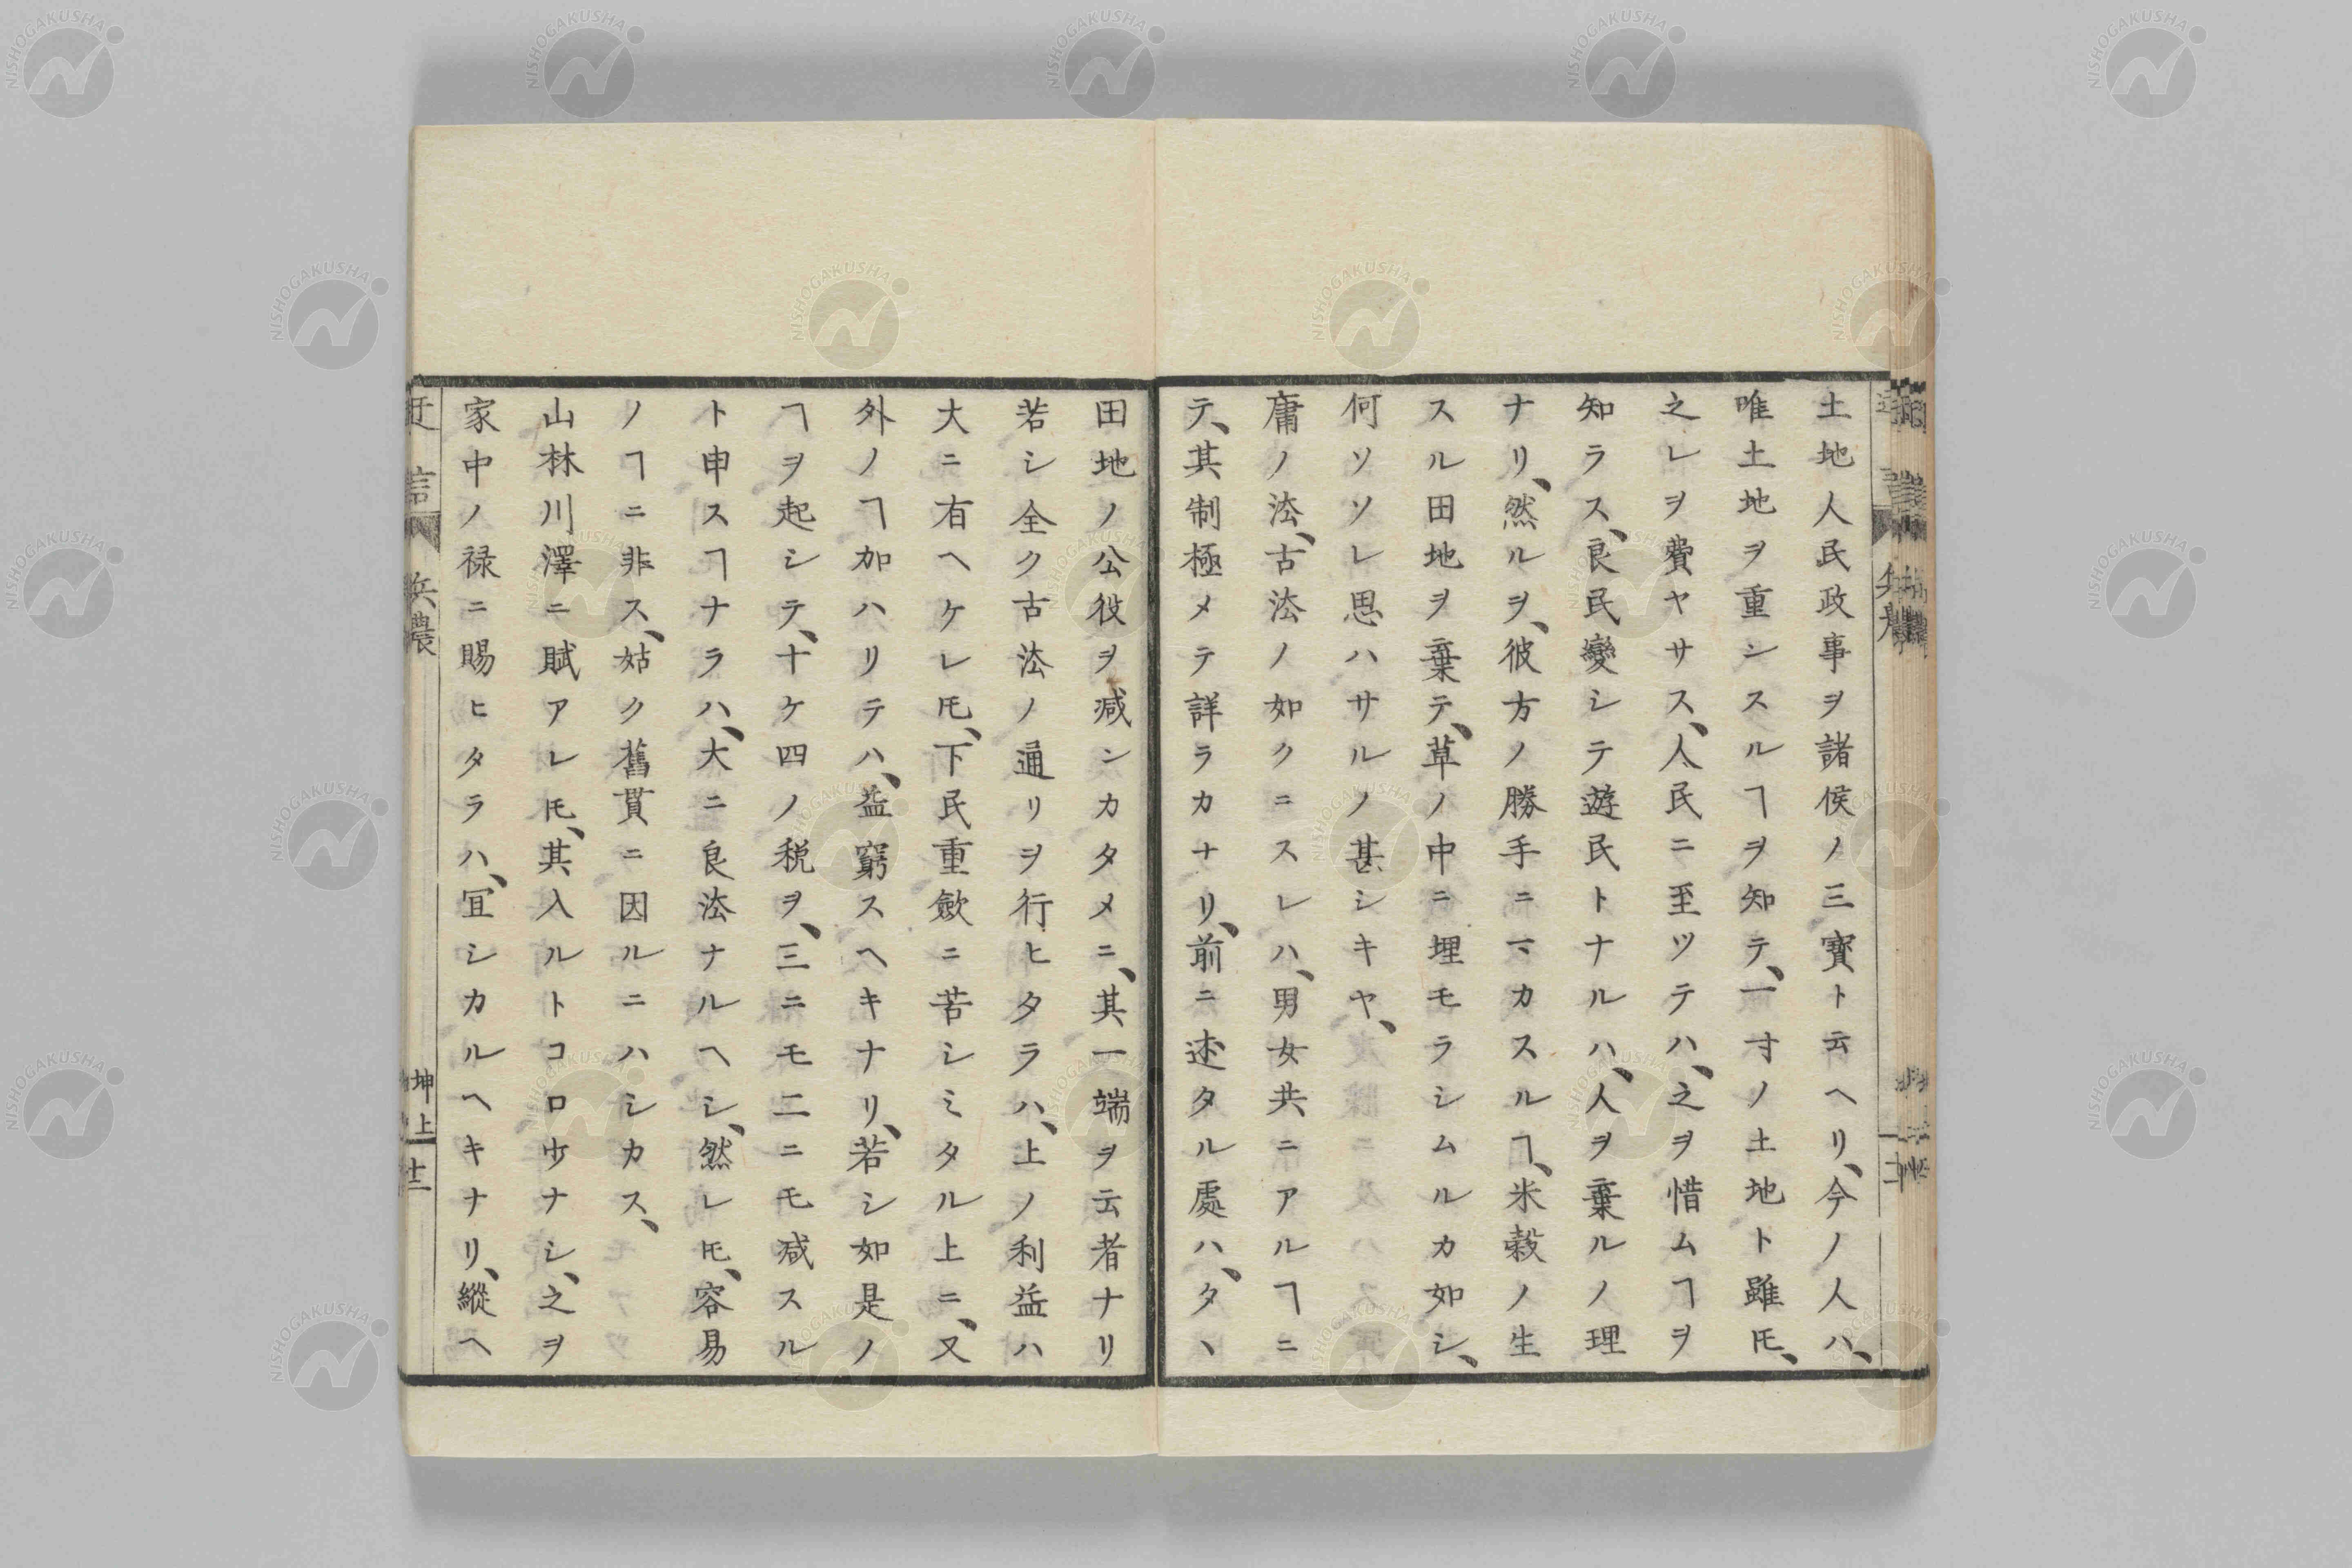 土地人民政事ヲ諸侯ノ三寳ト云ヘリ、今ノ人ハ、
唯土地ヲ重シスルヿヲ知テ、一寸ノ土地ト雖𪜈、
之レヲ費ヤサス、人民ニ至ツテハ、之ヲ惜ムヿヲ
知ラス、良民變シテ遊民トナルハ、人ヲ棄ルノ理
ナリ、然ルヲ、彼方ノ勝手ニマカスルヿ、米穀ノ生
スル田地ヲ棄テ、草ノ中ニ埋モラシムルカ如シ、
何ソソレ思ハサルノ甚シキヤ、
庸ノ法、古法ノ如クニスレハ、男女共ニアルヿニ
テ、其制極メテ詳ラカナリ、前ニ述タル處ハ、タヽ
田地ノ公役ヲ减ンカタメニ、其一端ヲ云者ナリ
若シ全ク古法ノ通リヲ行ヒタラハ、上ノ利益ハ
大ニ有ヘケレ𪜈、下民重歛ニ苦シミタル上ニ、又
外ノヿ加ハリテハ、益窮スヘキナリ、若シ如是ノ
ヿヲ起シテ、十ケ四ノ税ヲ、三ニモ二ニモ减スル
ト申スヿナラハ、大ニ良法ナルヘシ、然レ𪜈、容易
ノヿニ非ス、姑ク舊貫ニ因ルニハシカス、
山林川澤ニ賦アレ𪜈、其入ルトコロ少ナシ、之ヲ
家中ノ禄ニ賜ヒタラハ、冝シカルヘキナリ、縱ヘ
迂言 兵農 坤上 十二
NISHOGAKUSHA